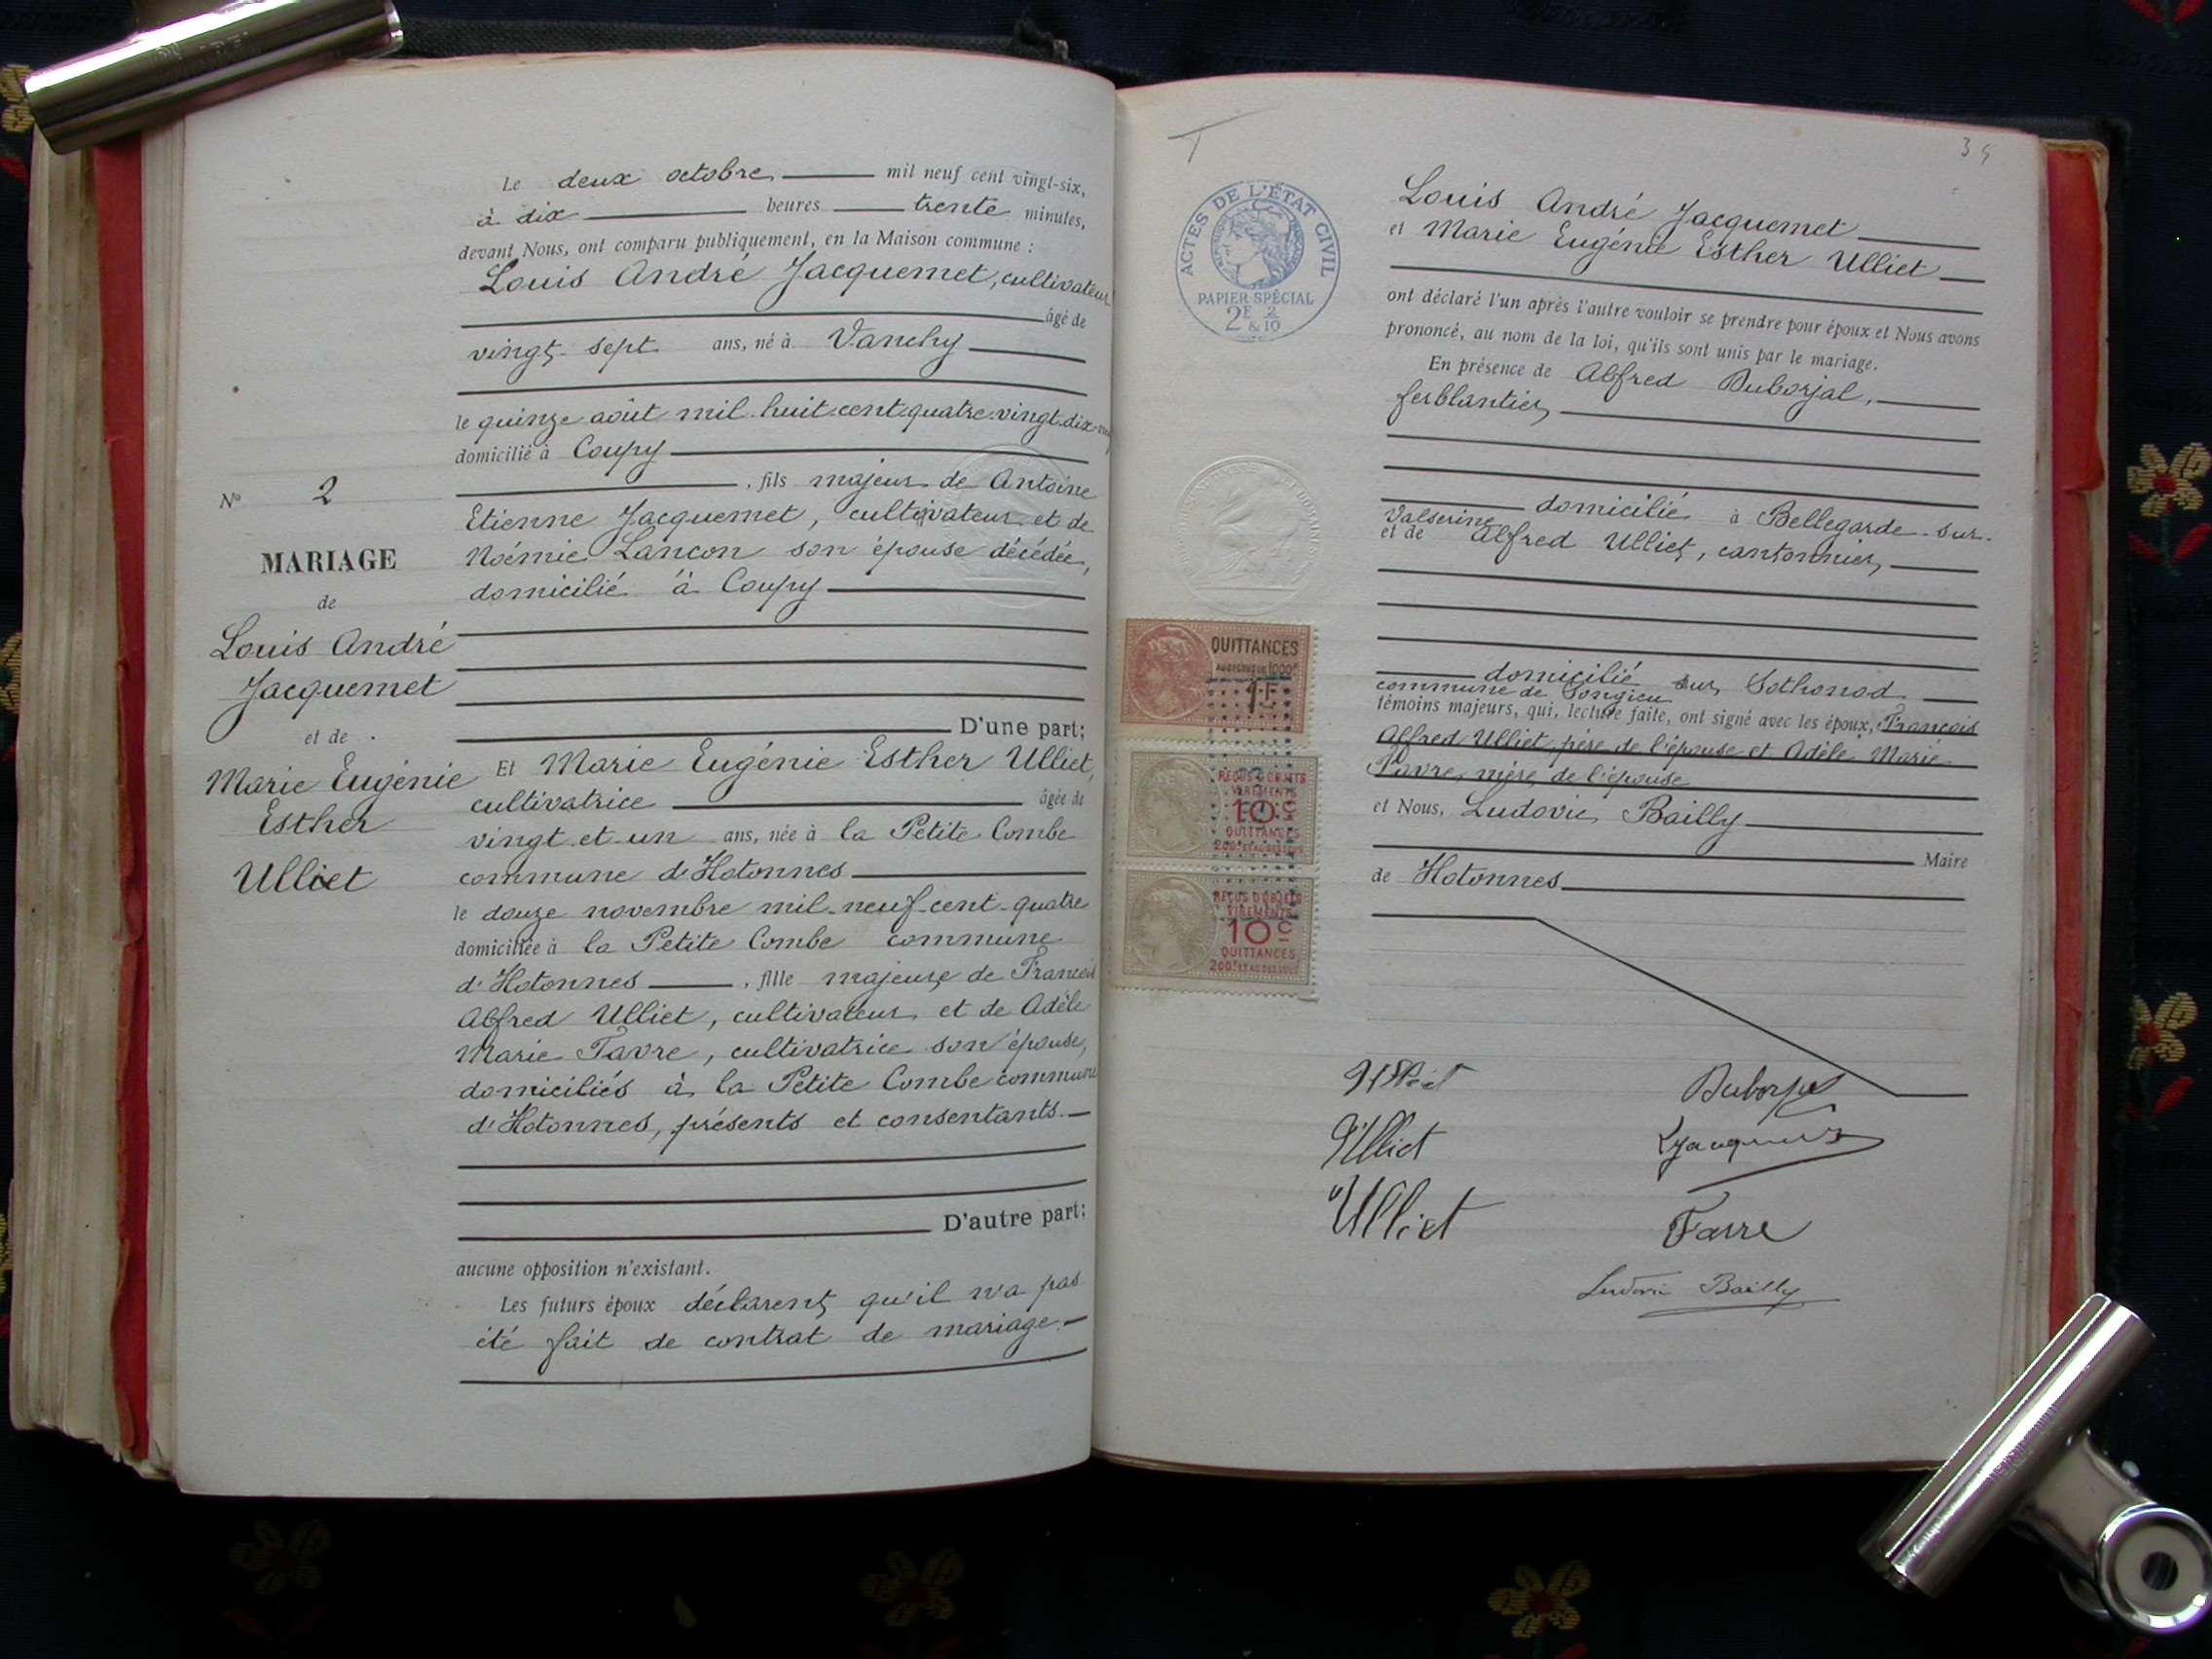 Le deux octobre mil neuf cent vingt-six,
à dix heures trente minutes,
devant Nous, ont comparu publiquement, en la Maison commune :
Louis André Jacquemet, cultivateur
âgé de
vingt-sept ans, né à Vanchy
le quinze août mil-huit-cent-quatre-vingt-dix-neuf
domicilié à Coupy
, fils majeur de Antoine
Etienne Jacquemet, cultivateur et de
Noémie Lançon son épouse décédée,
domicilié à Coupy
D'une part;
Et Marie Eugénie Esther Ulliet,
cultivatrice âgée de
vingt et un ans, née à la Petite Combe
commune d'Hotonnes
le douze novembre mil-neuf-cent-quatre
domiciliée à la Petite Combe commune
d'Hotonnes , fille majeure de François
Alfred Ulliet, cultivateur et de Adèle
Marie Favre, cultivatrice son épouse,
domiciliés à la Petite Combe commune
d'Hotonnes, présents et consentants.
D'autre part;
aucune opposition n'existant.
Les futurs époux déclarent qu'il n'a pas
été fait de contrat de mariage.
No 2
MARIAGE
de
Louis André
Jacquemet
et de
Marie Eugénie
Esther
Ulliet
ACTES DE L'ÉTAT CIVIL
PAPIER SPÉCIAL
2F 2
& 10
QUITTANCES
1F
REÇUS D'OBJETS
VIREMENTS
10c
QUITTANCES
REÇUS D'OBJETS
VIREMENTS
10c
QUITTANCES
Louis André Jacquemet
et Marie Eugénie Esther Ulliet
ont déclaré l'un après l'autre vouloir se prendre pour époux et Nous avons
prononcé, au nom de la loi, qu'ils sont unis par le mariage.
En présence de Alfred Duborjal,
ferblantier,
domicilié à Bellegarde-sur-
Valserine
et de Alfred Ulliet, cantonnier,
domicilié sur Sothonod
commune de Songieu
témoins majeurs, qui, lecture faite, ont signé avec les époux, François
Alfred Ulliet, père de l'épouse et Adèle Marie
Favre, mère de l'épouse
et Nous, Ludovic Bailly
Maire
de Hotonnes
Duborjal
Ulliet
LJacquemet
Ulliet
Favre
Ludovic Bailly